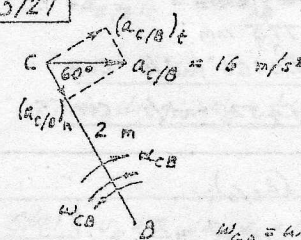 5/21
(a_{C/B})_t
C
60°
a_{C/B} = 16 m/s²
(a_{C/B})_n
2 m
α_{CB}
ω_{CB}
B
ω_{CB} =